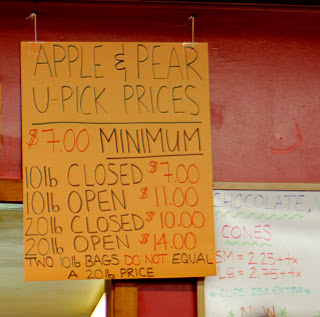 APPLE & PEAR
U-PICK PRICES
$7.00 MINIMUM
10lb CLOSED $7.00
10lb OPEN $11.00
20lb CLOSED $10.00
20lb OPEN $14.00
TWO 10lb BAGS DO NOT EQUAL
A 20lb PRICE
CHOCOLATE
CONES
SM = 2.25+tx
LG = 2.75+tx
* CUPS 25¢ EXTRA *
* NOW *